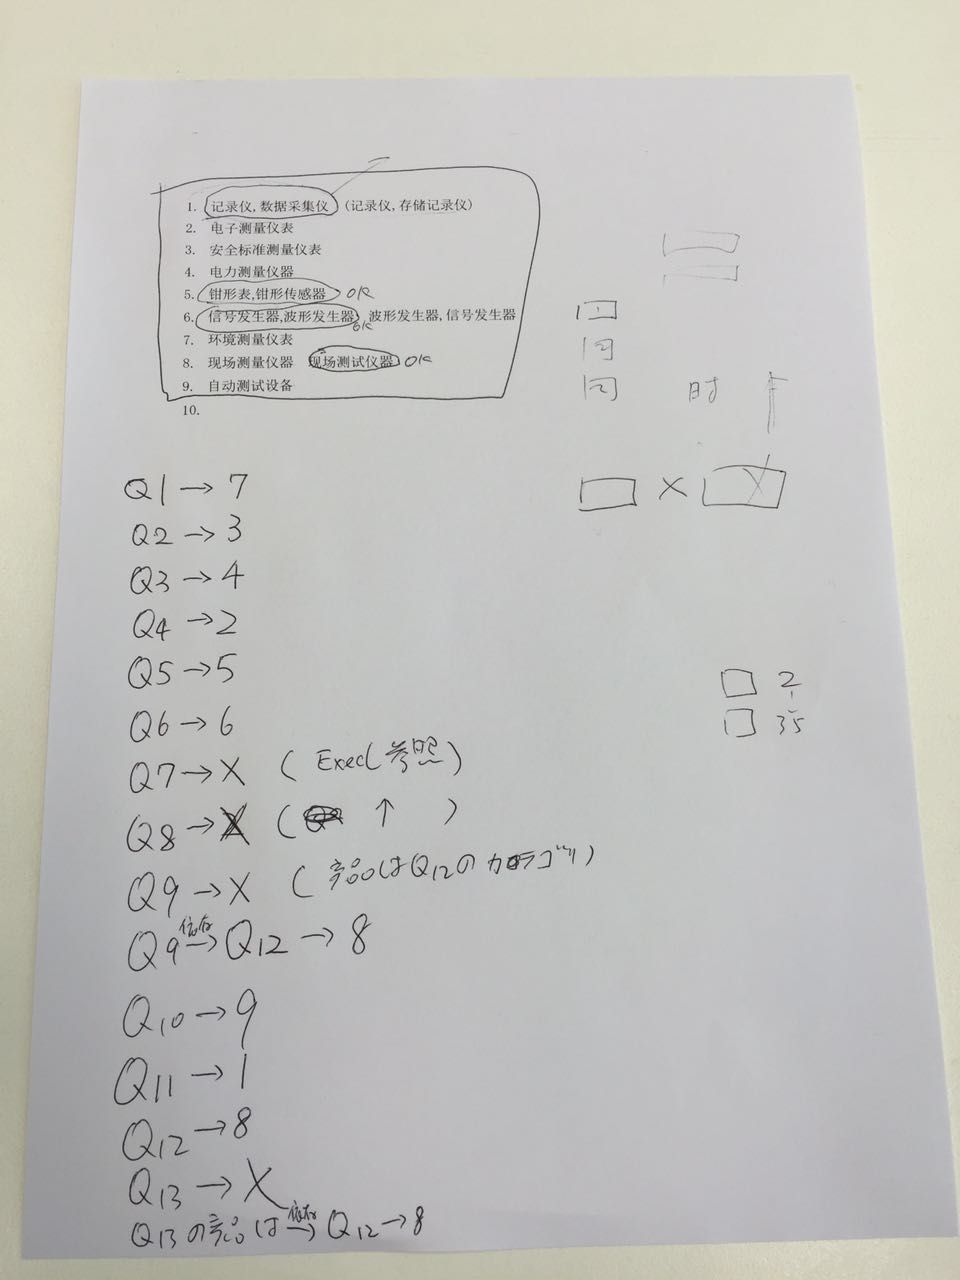 1. 记录仪,数据采集仪 (记录仪,存储记录仪)
2. 电子测量仪表
3. 安全标准测量仪表
4. 电力测量仪器
5. 钳形表,钳形传感器 OK
6. 信号发生器,波形发生器 OK 波形发生器,信号发生器
7. 环境测量仪表
8. 现场测量仪器 现场测试仪器 OK
9. 自动测试设备
10.
时
×
Q1→7
Q2→3
Q3→4
Q4→2
Q5→5
Q6→6
2
35
Q7→X (Execl参照)
Q8→X ( ↑ )
Q9→X (产品はQ12のカテゴリ)
Q9 依存→ Q12→8
Q10→9
Q11→1
Q12→8
Q13→X
Q13の产品は 依存→ Q12→8